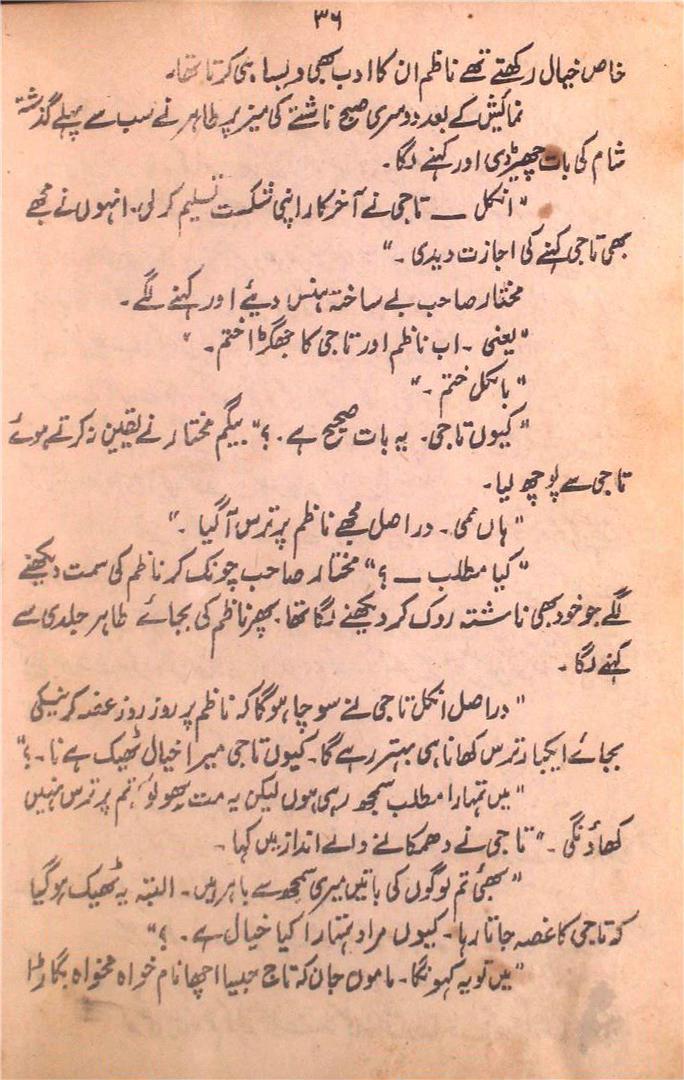 ۳۶
خاص خیال رکھتے تھے ناظم ان کا ادب بھی ویسا ہی کرتا تھا۔
نمائش کے بعد دوسری صبح ناشتے کی میز پر طاہر نے سب سے پہلے گذشتہ
شام کی بات چھیڑ دی اور کہنے لگا۔
"انکل ـــ تاجی نے آخر کار اپنی شکست تسلیم کر لی۔ انہوں نے مجھے
بھی تاجی کہنے کی اجازت دیدی۔"
مختار صاحب بے ساختہ ہنس دیئے اور کہنے لگے۔
"یعنی۔ اب ناظم اور تاجی کا جھگڑا ختم۔"
"بالکل ختم۔"
"کیوں تاجی۔ یہ بات صحیح ہے۔؟" بیگم مختار نے یقین نہ کرتے ہوئے
تاجی سے پوچھ لیا۔
"ہاں ممی۔ دراصل مجھے ناظم پر ترس آگیا۔"
"کیا مطلب ـــ؟" مختار صاحب چونک کر ناظم کی سمت دیکھنے
لگے جو خود بھی ناشتہ روک کر دیکھنے لگا تھا۔ پھر ناظم کی بجائے طاہر جلدی سے
کہنے لگا۔
"دراصل انکل تاجی نے سوچا ہوگا کہ ناظم پر روز روز غصہ کرنیکی
بجائے ایکبار ترس کھانا ہی بہتر رہے گا۔ کیوں تاجی میرا خیال ٹھیک ہے نا۔؟"
"میں تمہارا مطلب سمجھ رہی ہوں لیکن یہ مت بھولو، تم پر ترس نہیں
کھاؤنگی۔" تاجی نے دھمکانے والے انداز میں کہا۔
"بھئی تم لوگوں کی باتیں میری سمجھ سے باہر ہیں۔ البتہ یہ ٹھیک ہوگیا
کہ تاجی کا غصہ جاتا رہا۔ کیوں مراد تمہارا کیا خیال ہے۔؟"
"میں تو یہ کہونگا۔ ماموں جان کہ تاج جیسا اچھا نام خواہ مخواہ بگاڑا